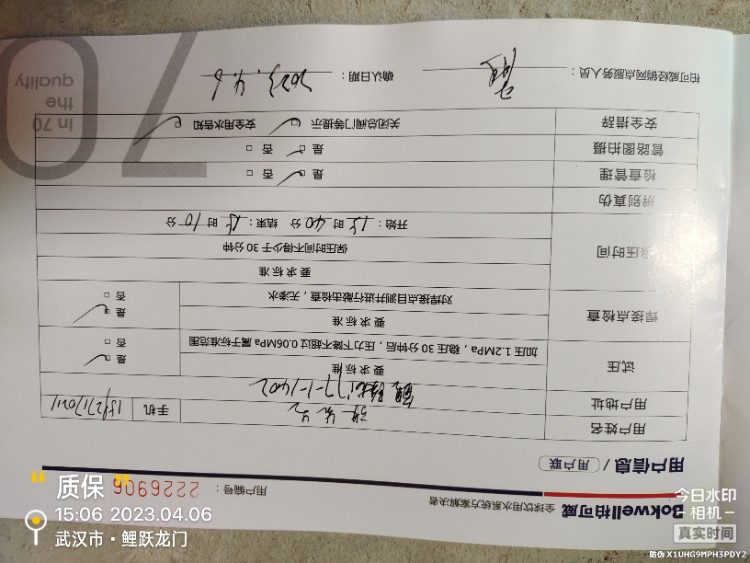 Bokwell柏可威 全球饮用水系统方案解决者
用户编号： 2226906
用户信息 / 用户联
用户姓名
手机
用户地址 17-1-1402
试压
要求标准
加压1.2MPa，稳压30分钟后，压力下降不超过0.06MPa属于标准范围
是 □
否 □
焊接点检查
要求标准
对焊接点目测并进行敲击检查，无渗水
是 □
否 □
保压时间
要求标准
保压时间不得少于30分钟
开始：15时40分 结束：18时10分
辨别真伪
检查管理
是 □ 否 □
管路图拍摄
是 □ 否 □
安全措辞
关闭总阀门等提示 □ 安全用水告知 □
柏可威经销网点服务人员：
确认日期： 2023.4.6
In 70
the
quality
70
质保
15:06 2023.04.06
武汉市·鲤跃龙门
今日水印
相机
真实时间
防伪 X1UHG9MPH3PDY2